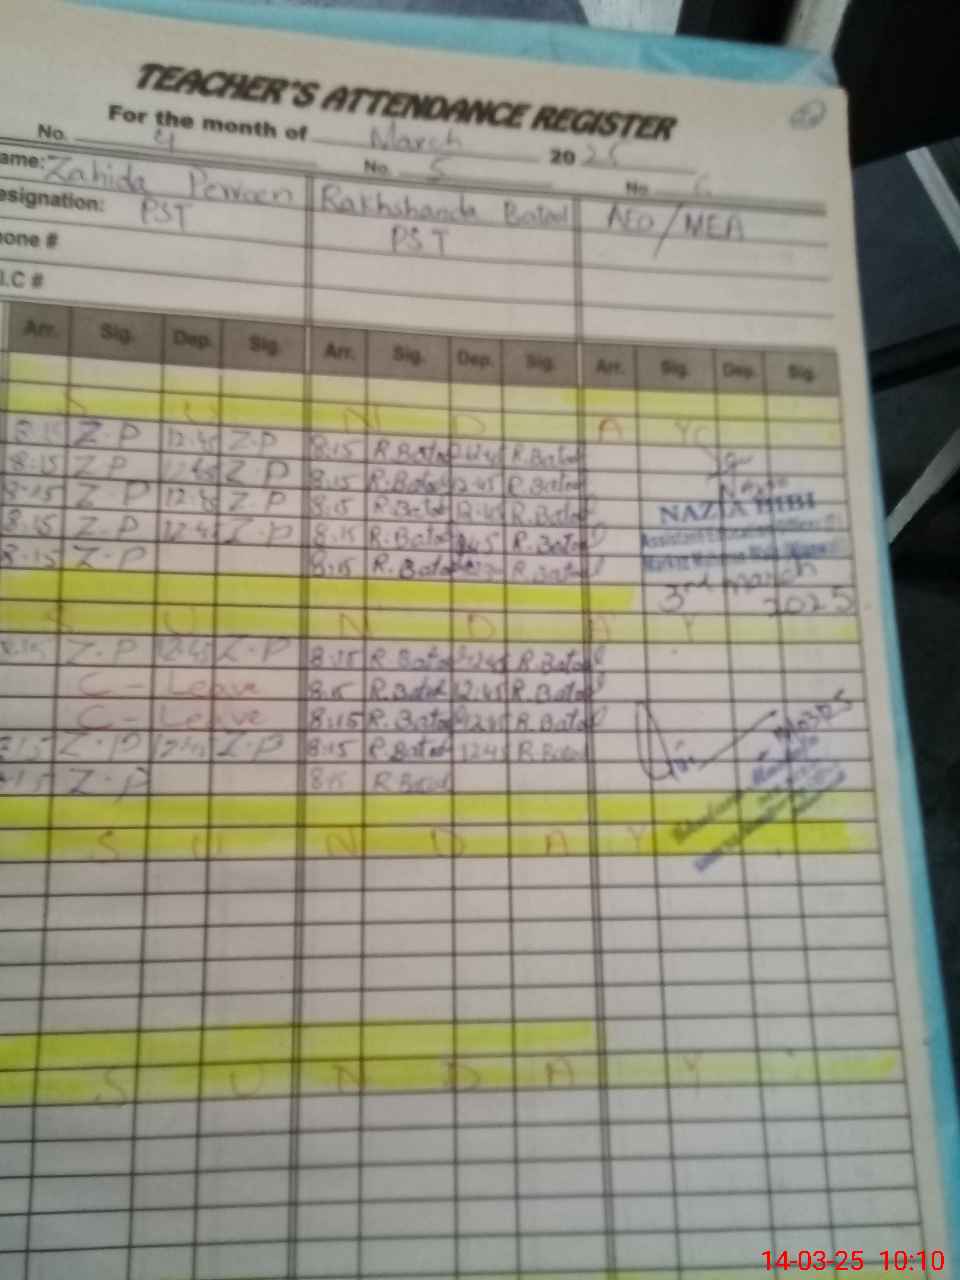 TEACHER'S ATTENDANCE REGISTER
For the month of March 20 25
No. 4 No. 5 No. 6
ame: Zahida Perveen Rakhshanda Batool AEO/MEA
esignation: PST PST
one #
I.C #
Arr. Sig. Dep. Sig. Arr. Sig. Dep. Sig. Arr. Sig. Dep. Sig.
S U N D A Y
8:15 Z.P 12:45 Z.P 8:15 R.Batool 12:45 R.Batool
8:15 Z.P 12:45 Z.P 8:15 R.Batool 12:45 R.Batool
8:15 Z.P 12:45 Z.P 8:15 R.Batool 12:45 R.Batool NAZIA BIBI
8:15 Z.P 12:45 Z.P 8:15 R.Batool 12:45 R.Batool Assistant Education Officer
8:15 Z.P 8:15 R.Batool R.Batool
3rd march 2025
S U N D A Y
8:15 Z.P 12:45 Z.P 8:15 R.Batool 12:45 R.Batool
C - Leave 8:15 R.Batool 12:45 R.Batool
C - Leave 8:15 R.Batool 12:45 R.Batool
8:15 Z.P 12:45 Z.P 8:15 R.Batool 12:45 R.Batool
8:15 Z.P 8:15 R.Batool
S U N D A Y
S U N D A Y
14-03-25 10:10